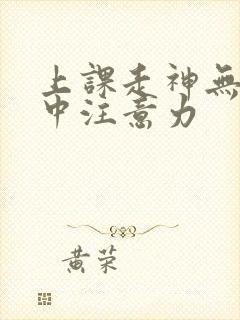 上課走神無
中注意力
黃荣